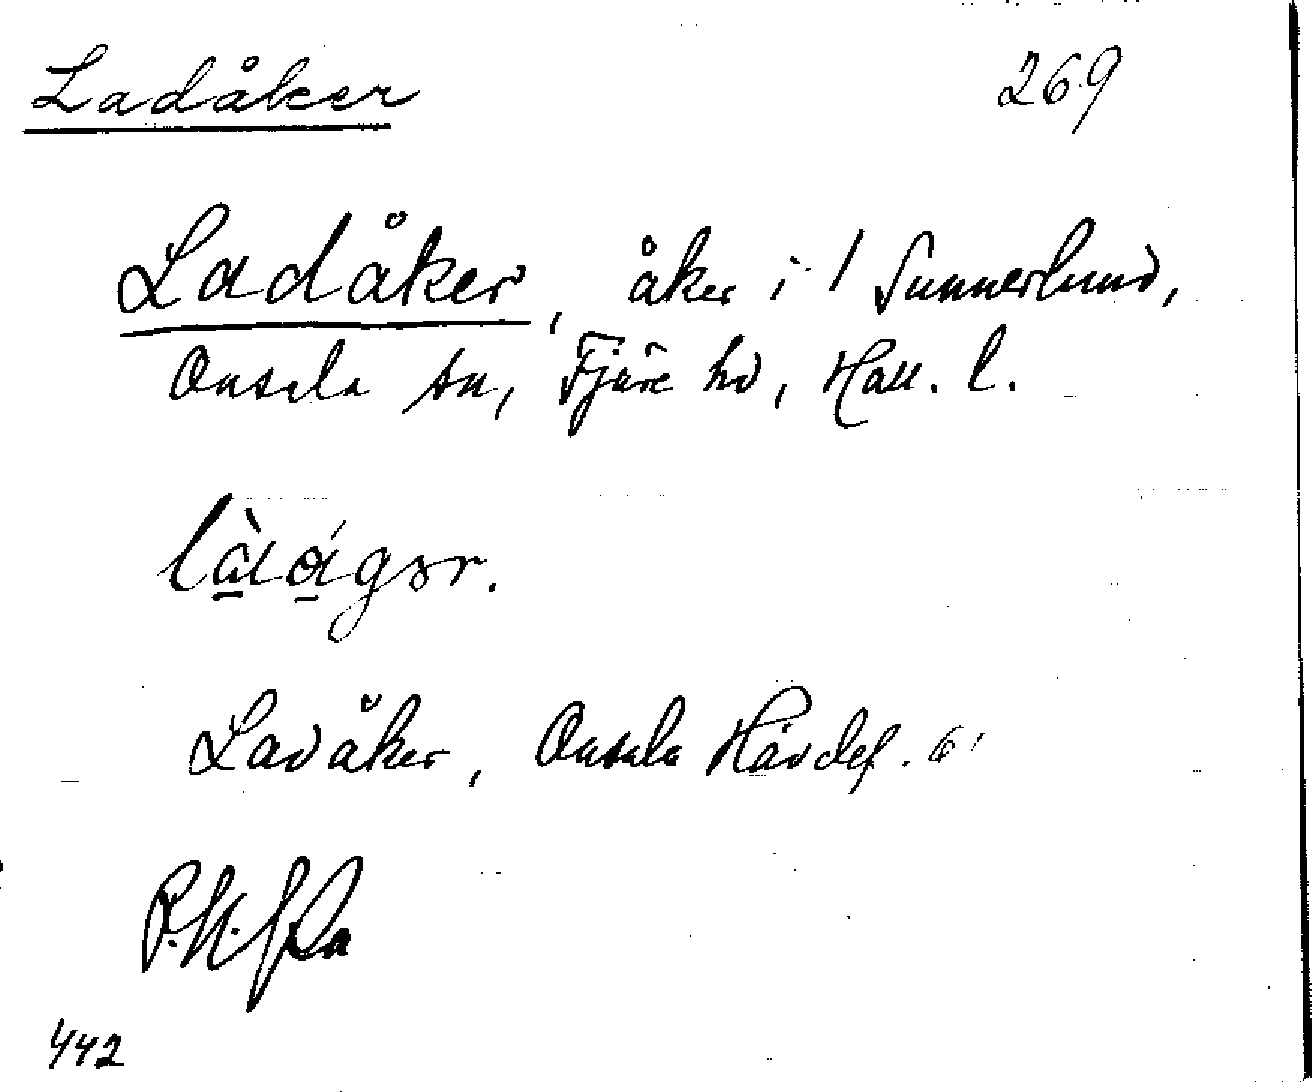 Ladåker 269
Ladåker, åker i 1 Sunnerlund,
Onsala sn, Fjäre hd, Hall. l.
Ladåker, Onsala Hävdef. 61
442